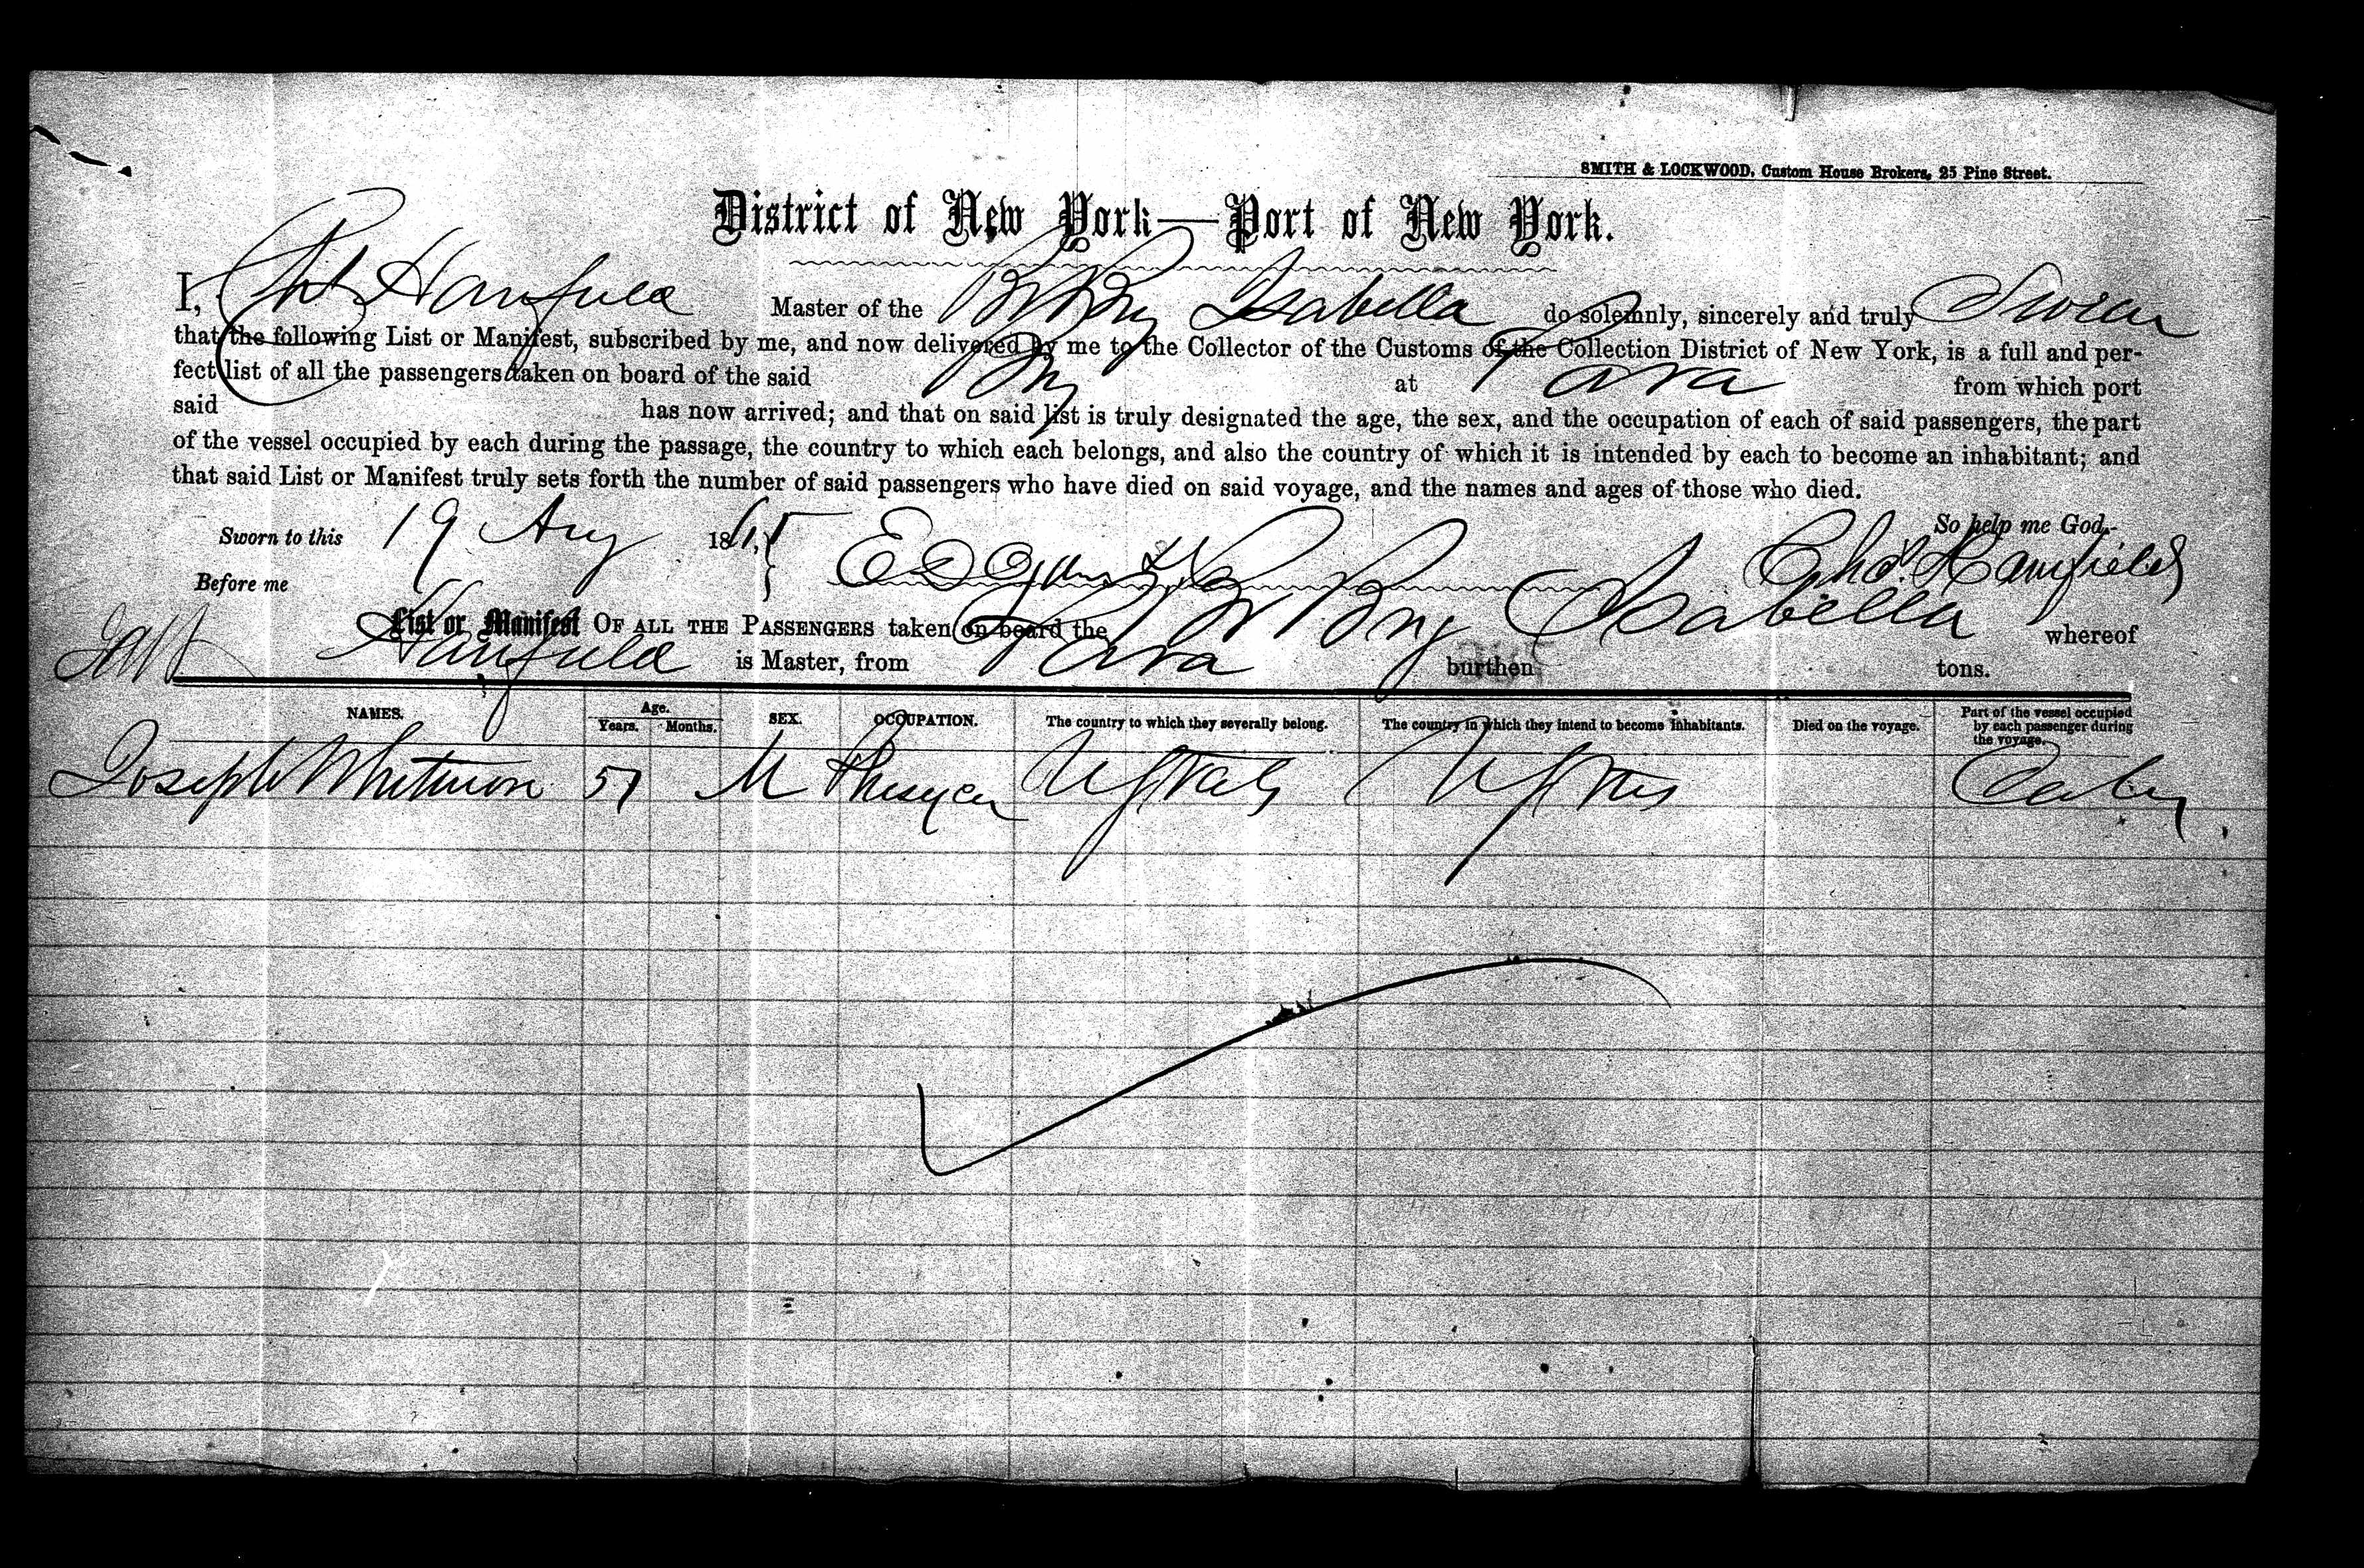 SMITH & LOCKWOOD, Custom House Brokers, 25 Pine Street.
District of New York—Port of New York.
I, Hanfield Master of the Br Brig Isabella do solemnly, sincerely and truly Swear
that the following List or Manifest, subscribed by me, and now delivered by me to the Collector of the Customs of the Collection District of New York, is a full and per-
fect list of all the passengers taken on board of the said Brig at Para from which port
said has now arrived; and that on said list is truly designated the age, the sex, and the occupation of each of said passengers, the part
of the vessel occupied by each during the passage, the country to which each belongs, and also the country of which it is intended by each to become an inhabitant; and
that said List or Manifest truly sets forth the number of said passengers who have died on said voyage, and the names and ages of those who died.
So help me God.
Sworn to this 19 Aug 1865
Chas. Hanfield
Before me
List or Manifest OF ALL THE PASSENGERS taken on board the Br Brig Isabella whereof
Hanfield is Master, from Para burthen tons.
NAMES. Age. Years. Months. SEX. OCCUPATION. The country to which they severally belong. The country in which they intend to become inhabitants. Died on the voyage. Part of the vessel occupied by each passenger during the voyage.
Joseph 57 M U States U States Cabin